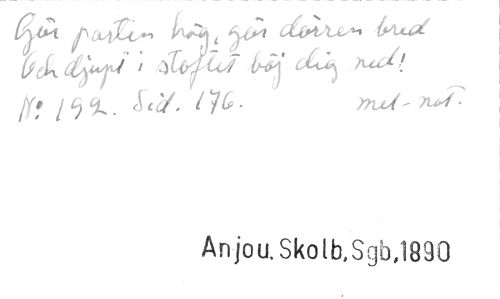 Gör porten hög, gör dörren bred
Och djupt i stoftet böj dig ned!
No: 192. Sid. 176. mel-not.
Anjou. Skolb, Sgb, 1890